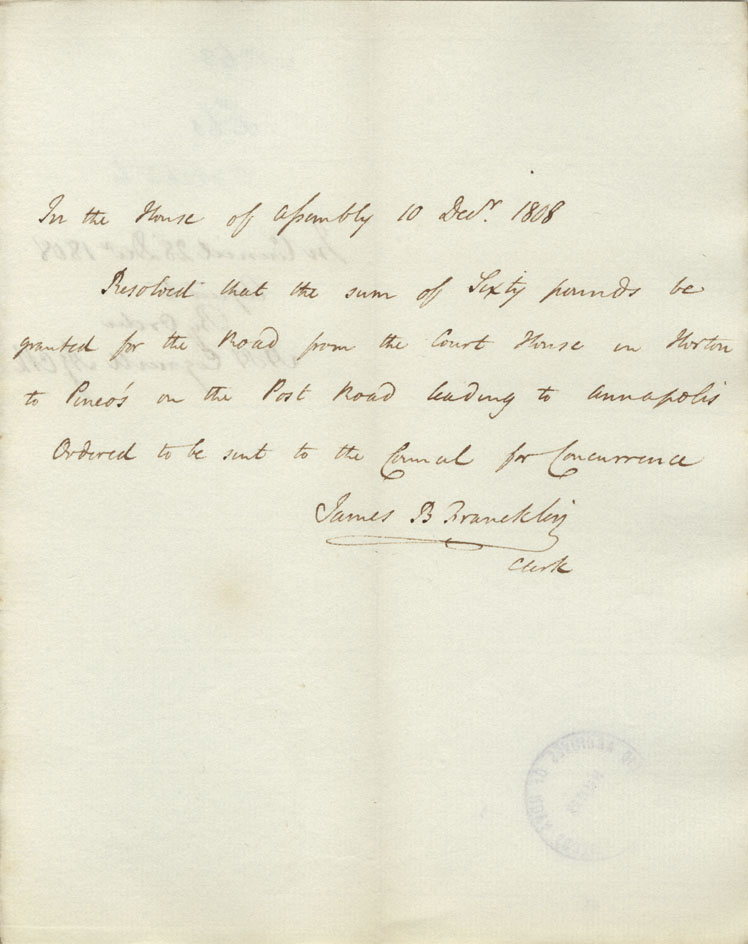 In the House of Assembly 10 Decr. 1808
Resolved that the sum of Sixty pounds be
granted for the Road from the Court House in Horton
to Pineo's on the Post Road leading to Annapolis
Ordered to be sent to the Council for Concurrence
James B Francklin
Clerk
In Council 28 Decr 1808